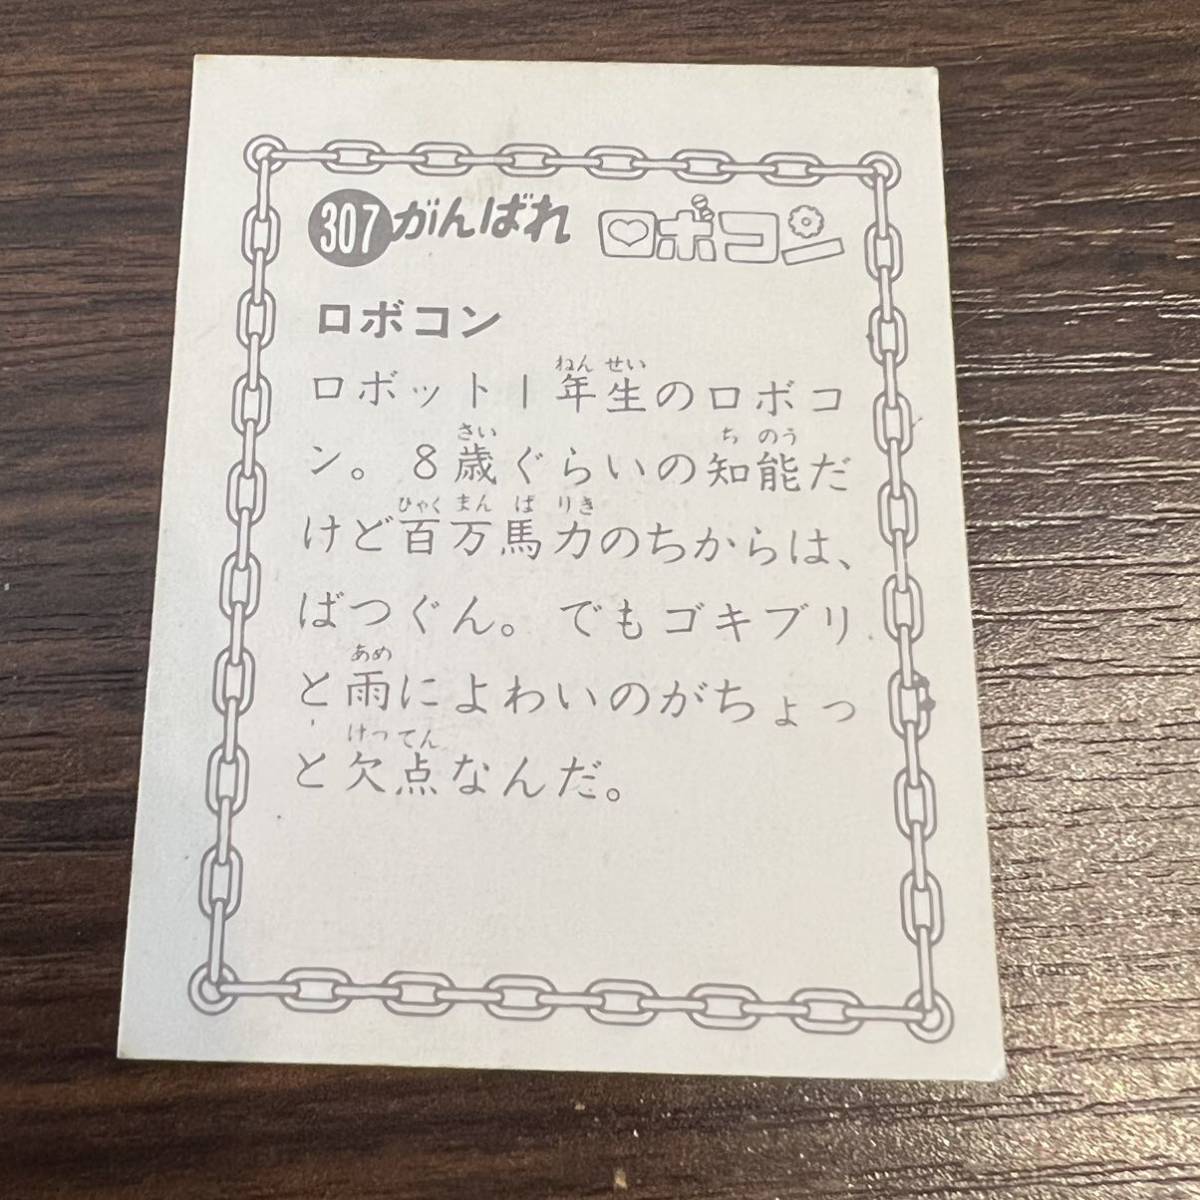 307 がんばれ ロボコン
ロボコン
ロボット1年生のロボコ
ン。8歳ぐらいの知能だ
けど百万馬力のちからは、
ばつぐん。でもゴキブリ
と雨によわいのがちょっ
と欠点なんだ。